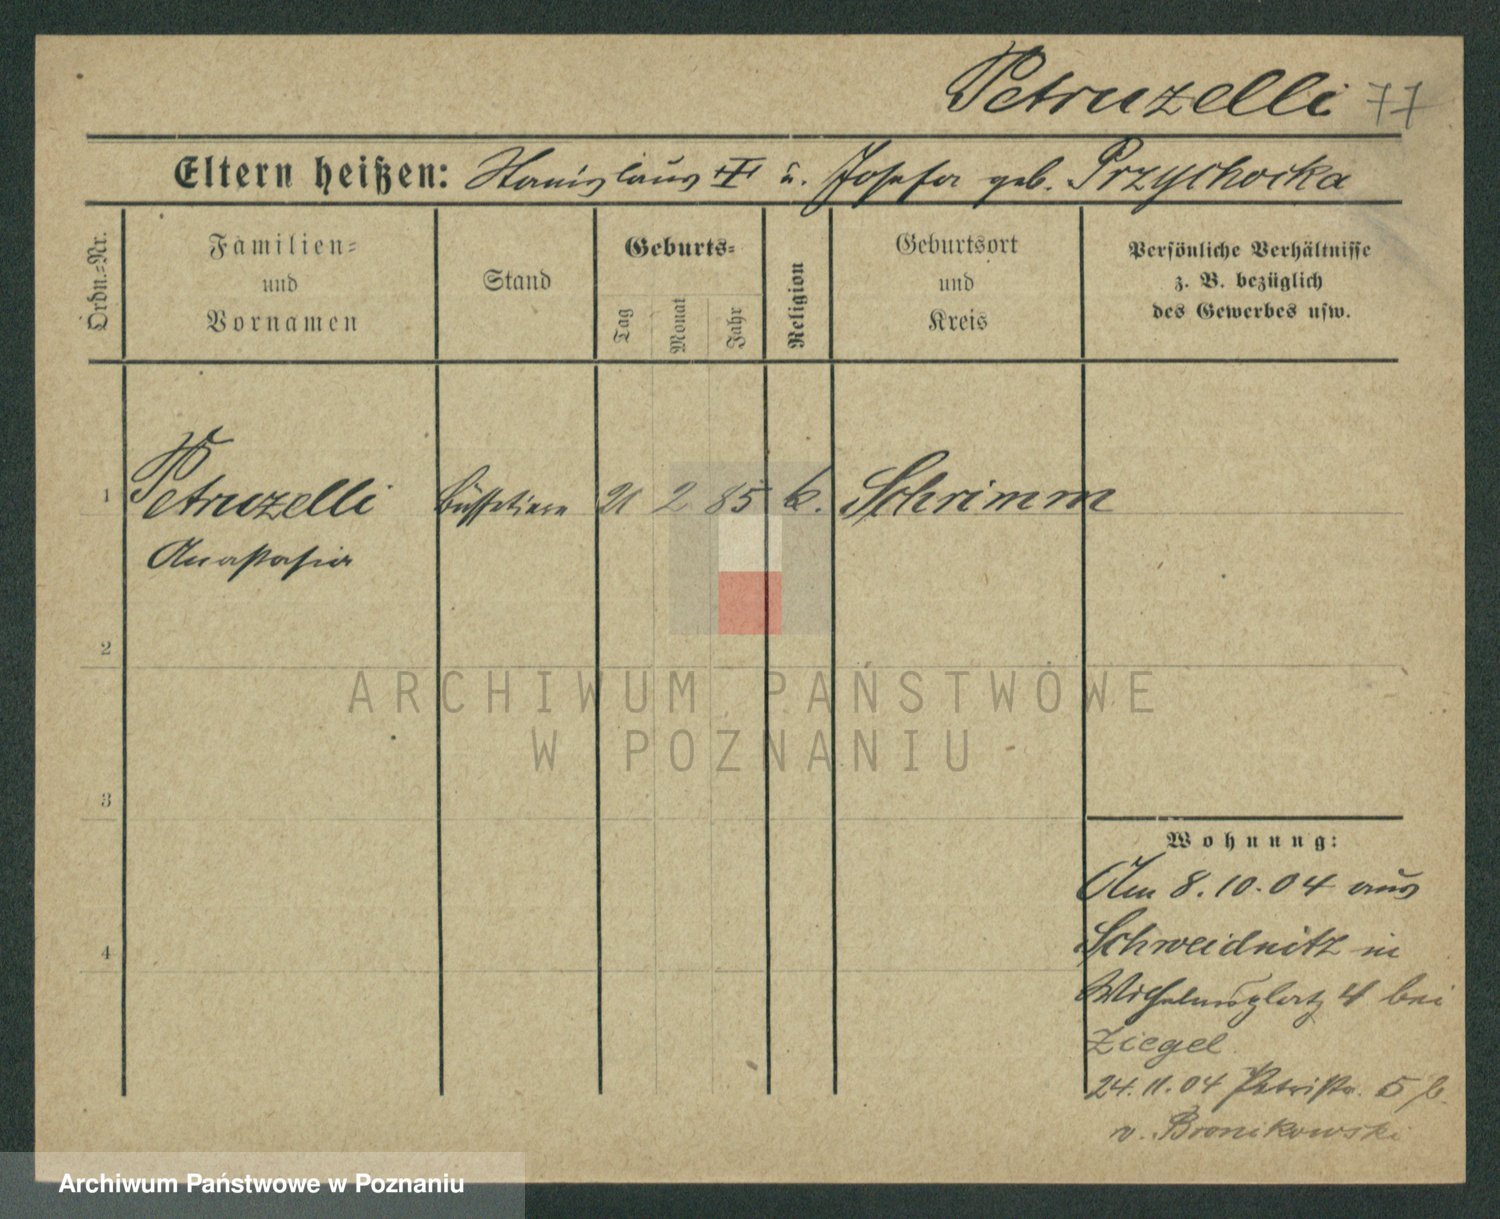 Petruzelli 77
Eltern heißen: Stanislaus u. Josefa geb. Przychocka
Ordn.=Nr.
Familien=
und
Vornamen
Stand
Geburts=
Tag
Monat
Jahr
Religion
Geburtsort
und
Kreis
Persönliche Verhältnisse
z. B. bezüglich
des Gewerbes usw.
1
Petruzelli
Anastasia
21 2 85 k. Schrimm
2
3
4
Wohnung:
Am 8.10.04 aus
Schweidnitz in
Wilhelmsplatz 4 bei
Ziegel
24.11.04 Petristr. 5 b.
v. Bronikowski
ARCHIWUM PAŃSTWOWE
W POZNANIU
Archiwum Państwowe w Poznaniu